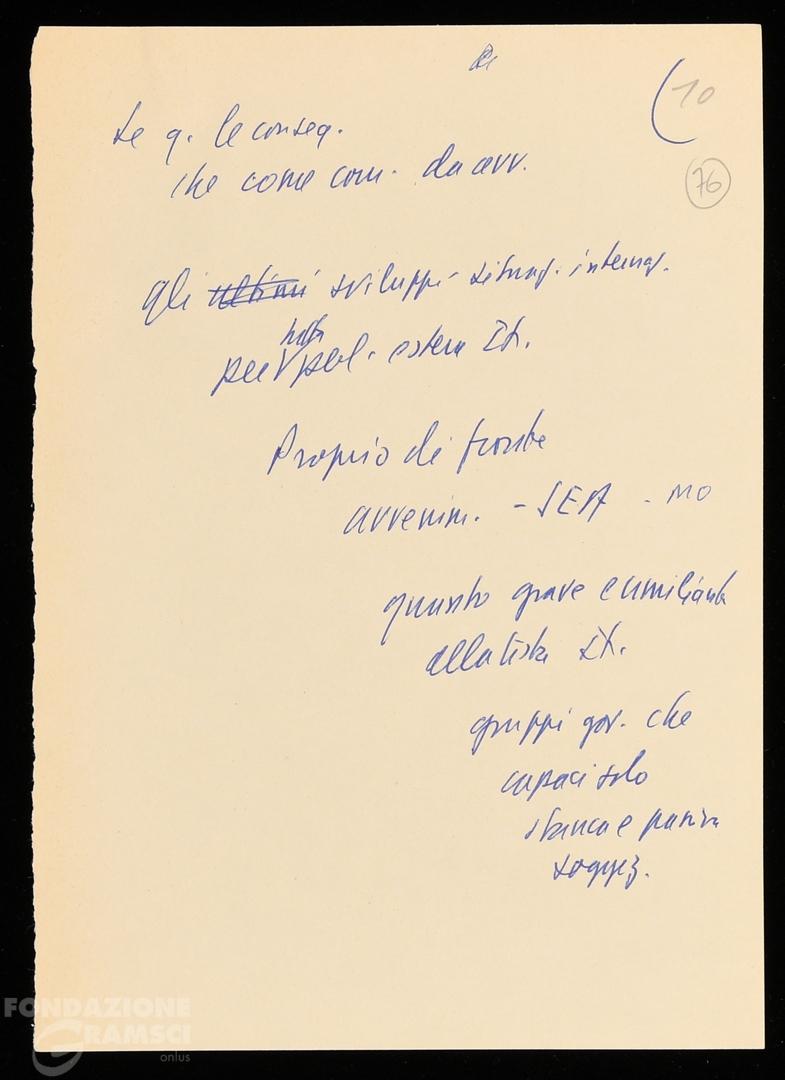 (10
76
Le q. le conseq.
che come com. da avv.
gli ultimi sviluppi situaz. internaz.
per tutta pol. estera It.
Proprio di fronte
avvenim. - SEA - MO
quanto grave e umiliante
alla testa It.
gruppi gov. che
capaci solo
stanca e passiva
soggez.
FONDAZIONE
GRAMSCI
onlus